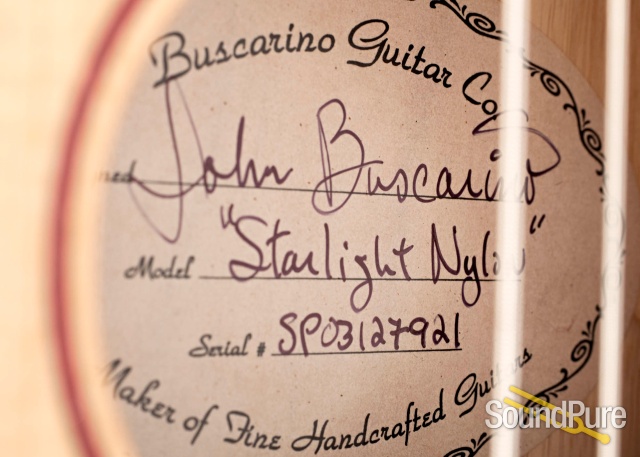 Buscarino Guitar Co
John Buscarino
Model "Starlight Nylon"
Serial # SP03127921
Maker of Fine Handcrafted Guitars
SoundPure